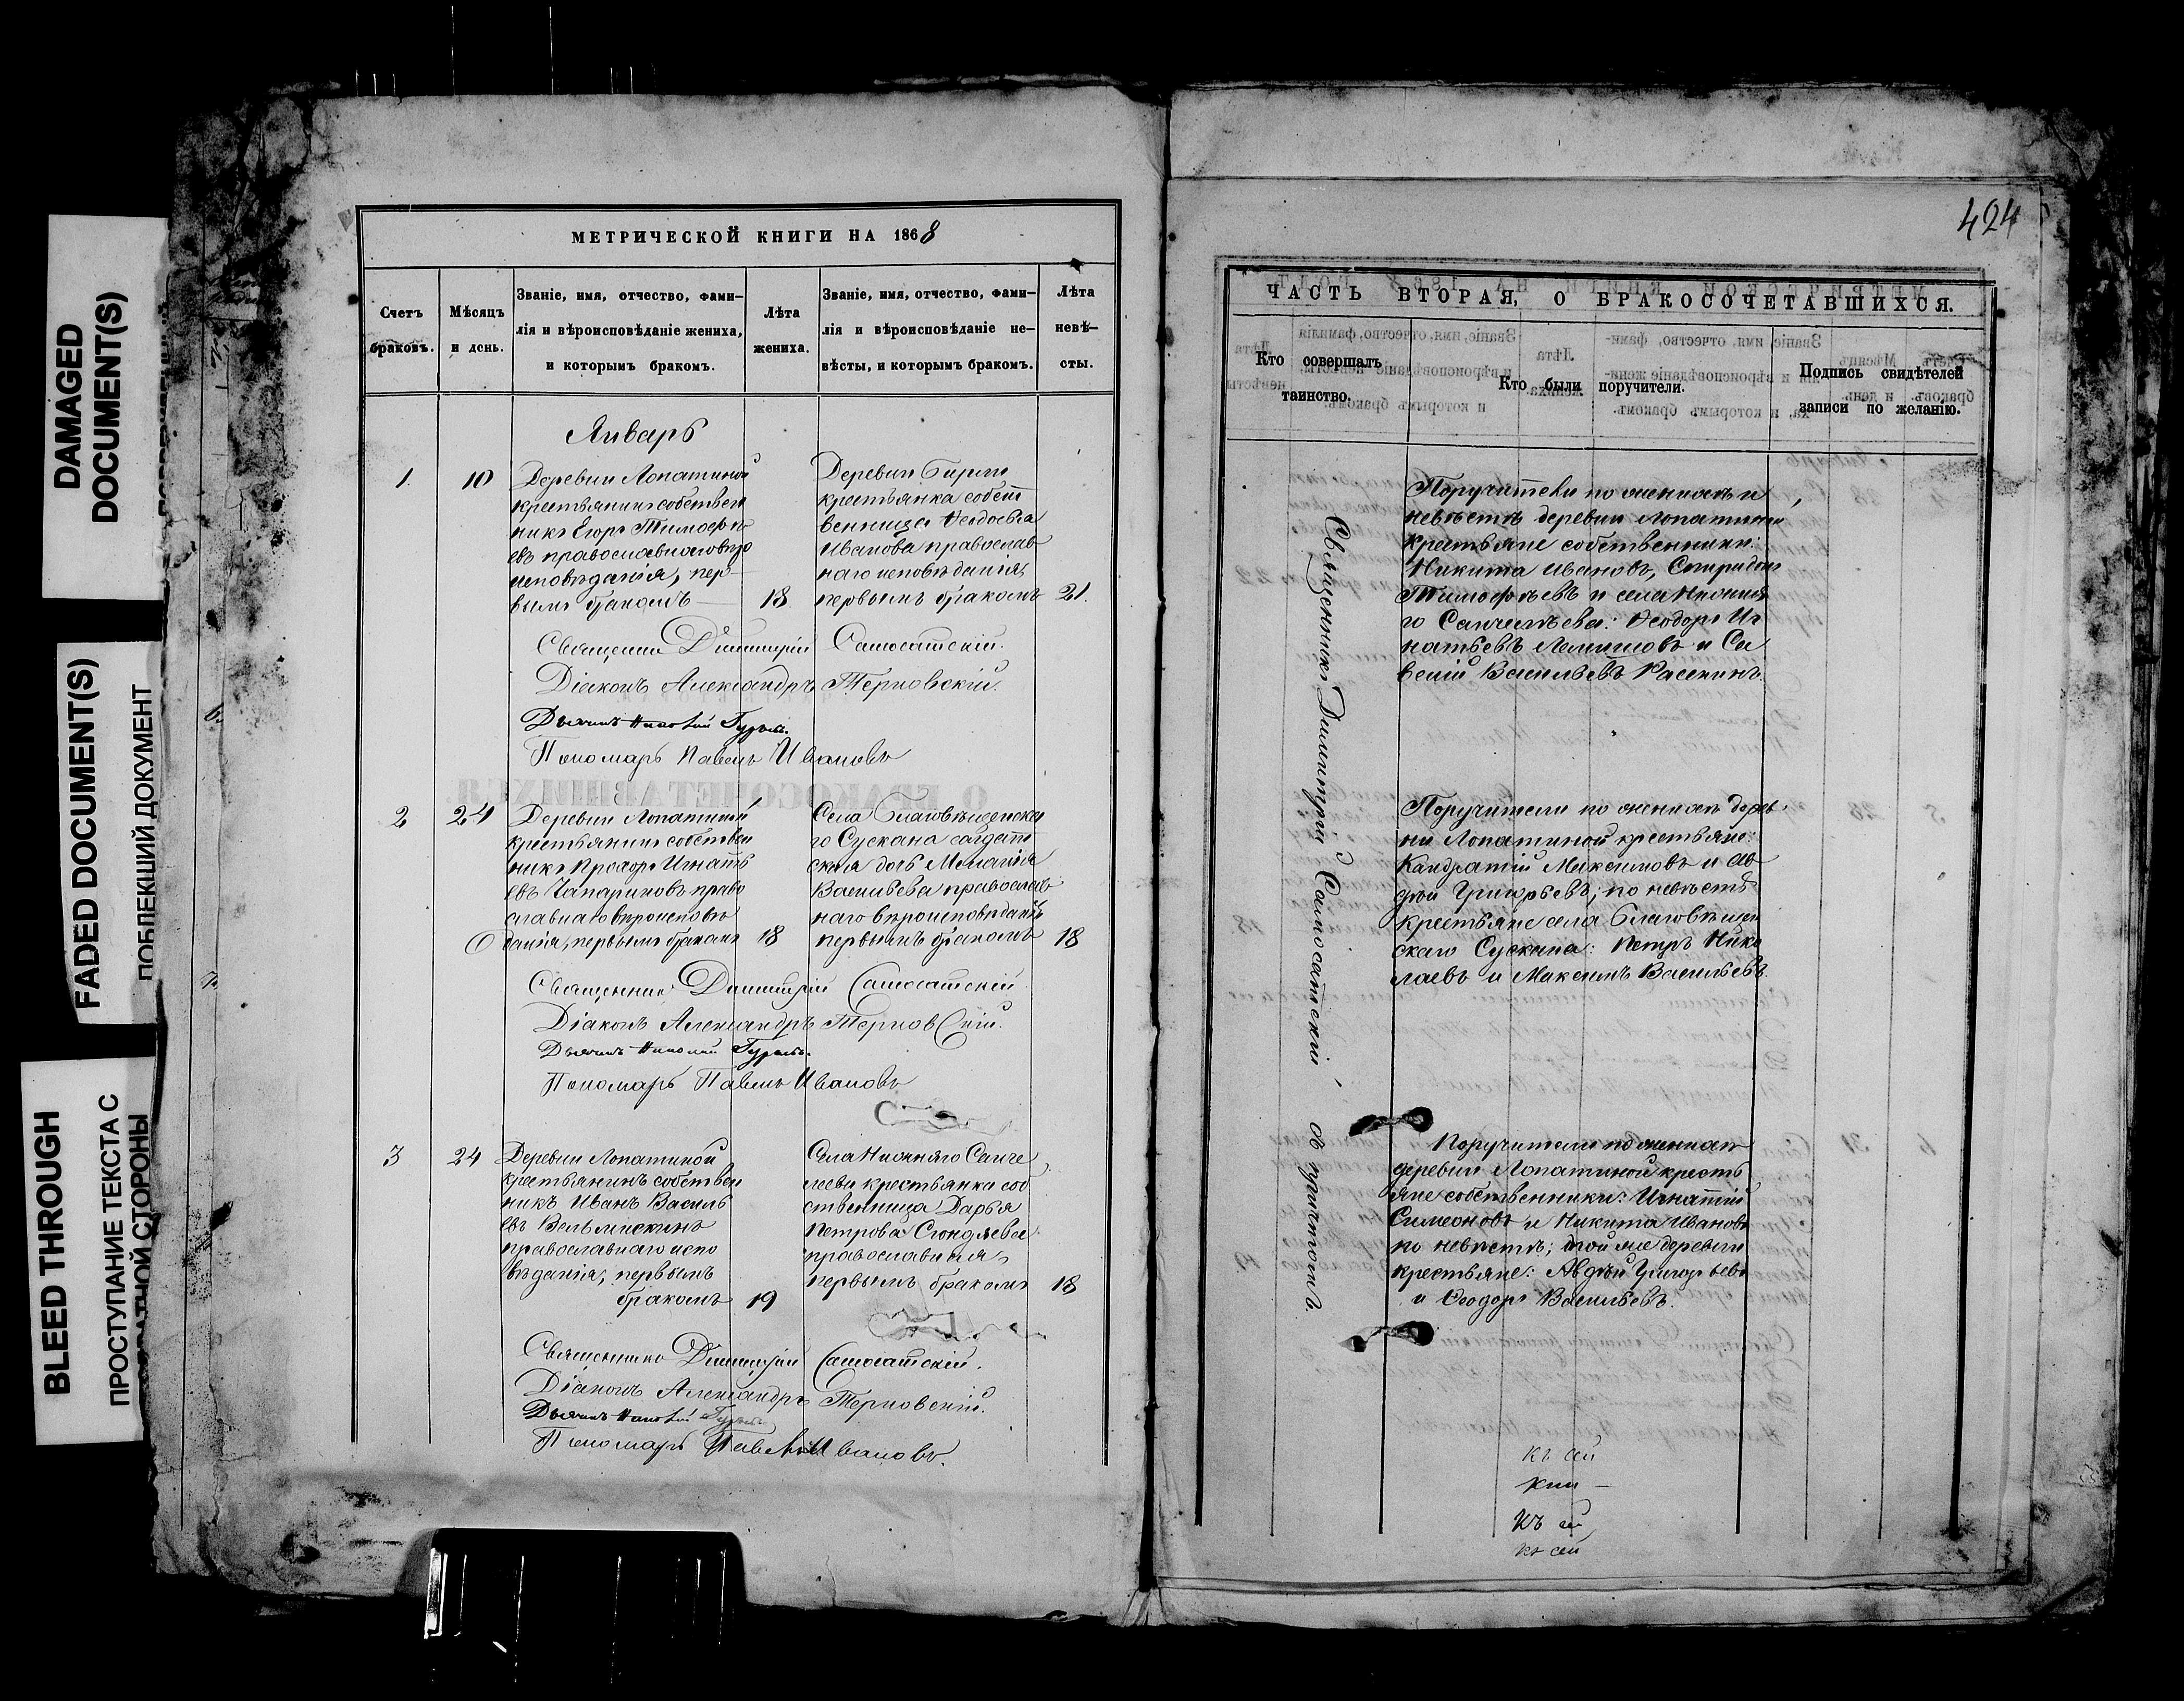 DAMAGED
DOCUMENT(S)
FADED DOCUMENT(S)
ПОБЛЕКШИЙ ДОКУМЕНТ
BLEED THROUGH
ПРОСТУПАНИЕ ТЕКСТА С
ОБРАТНОЙ СТОРОНЫ
МЕТРИЧЕСКОЙ КНИГИ НА 1868
Счетъ браковъ.
Мѣсяцъ и день.
Званіе, имя, отчество, фами-
лія и вѣроисповѣданіе жениха,
и которымъ бракомъ.
Лѣта жениха.
Званіе, имя, отчество, фами-
лія и вѣроисповѣданіе не-
вѣсты, и которымъ бракомъ.
Лѣта невѣ-
сты.
Январь
1. 10
Деревни Лопатиной
крестьянинъ собствен
никъ Егоръ Тимофѣ
евъ православнаго вѣро
исповѣданія, пер-
вымъ бракомъ — 18
Деревни
крестьянка собст
венница Ѳеодосья
Иванова православ
наго исповѣданія,
первымъ бракомъ 21.
Священникъ Димитрій Самосатскій.
Діаконъ Александръ Терновскій.
Дьячекъ Николай Гурьевъ.
Пономарь Павелъ Ивановъ
2 24
Деревни Лопатиной
крестьянинъ собствен
никъ Прохоръ Игнать
евъ Чапариновъ право
славнаго вѣроисповѣ
данія, первымъ бракомъ 18
Села Благовѣщенска
го Сускана солдат
ская дочь Меланія
Васильева православ
наго вѣроисповѣданія
первымъ бракомъ 18
Священникъ Димитрій Самосатскій
Діаконъ Александръ Терновскій.
Дьячекъ Николай Гурьевъ.
Пономарь Павелъ Ивановъ
3 24
Деревни Лопатиной
крестьянинъ собствен
никъ Иванъ Василь
евъ Вельмискинъ
православнаго испо
вѣданія, первымъ
бракомъ 19
Села Нижняго Санче
леева крестьянка соб
ственница Дарья
Петрова Сюндяева
православная,
первымъ бракомъ 18
Священникъ Димитрій Самосатскій.
Діаконъ Александръ Терновскій.
Дьячекъ Николай Гурьевъ
Пономарь Павелъ Ивановъ.
424
ЧАСТЬ ВТОРАЯ, О БРАКОСОЧЕТАВШИХСЯ.
Кто совершалъ
таинство.
Кто были поручители.
Подпись свидѣтелей
записи по желанію.
Священникъ Димитрій Самосатскій съ причтомъ.
Поручители по женихѣ и
невѣстѣ деревни Лопатиной
крестьяне собственники:
Никита Ивановъ, Спиридонъ
Тимофѣевъ и села Нижня
го Санчелѣева: Ѳеодоръ Иг
натьевъ и Са
велій Васильевъ
Поручители по женихѣ дерев
ни Лопатиной крестьяне:
Кандратій Максимовъ и Ав
дѣй Григорьевъ; по невѣстѣ
крестьяне села Благовѣщен
скаго Сускана: Петръ Нико
лаевъ и Максимъ Васильевъ.
Поручители по женихѣ
деревни Лопатиной кресть
яне собственники: Игнатій
Симеоновъ и Никита Ивановъ
по невѣстѣ; той же деревни
крестьяне: Авдѣй Григорьевъ
и Ѳеодоръ Васильевъ.
къ сей
кни —
къ сей
къ сей